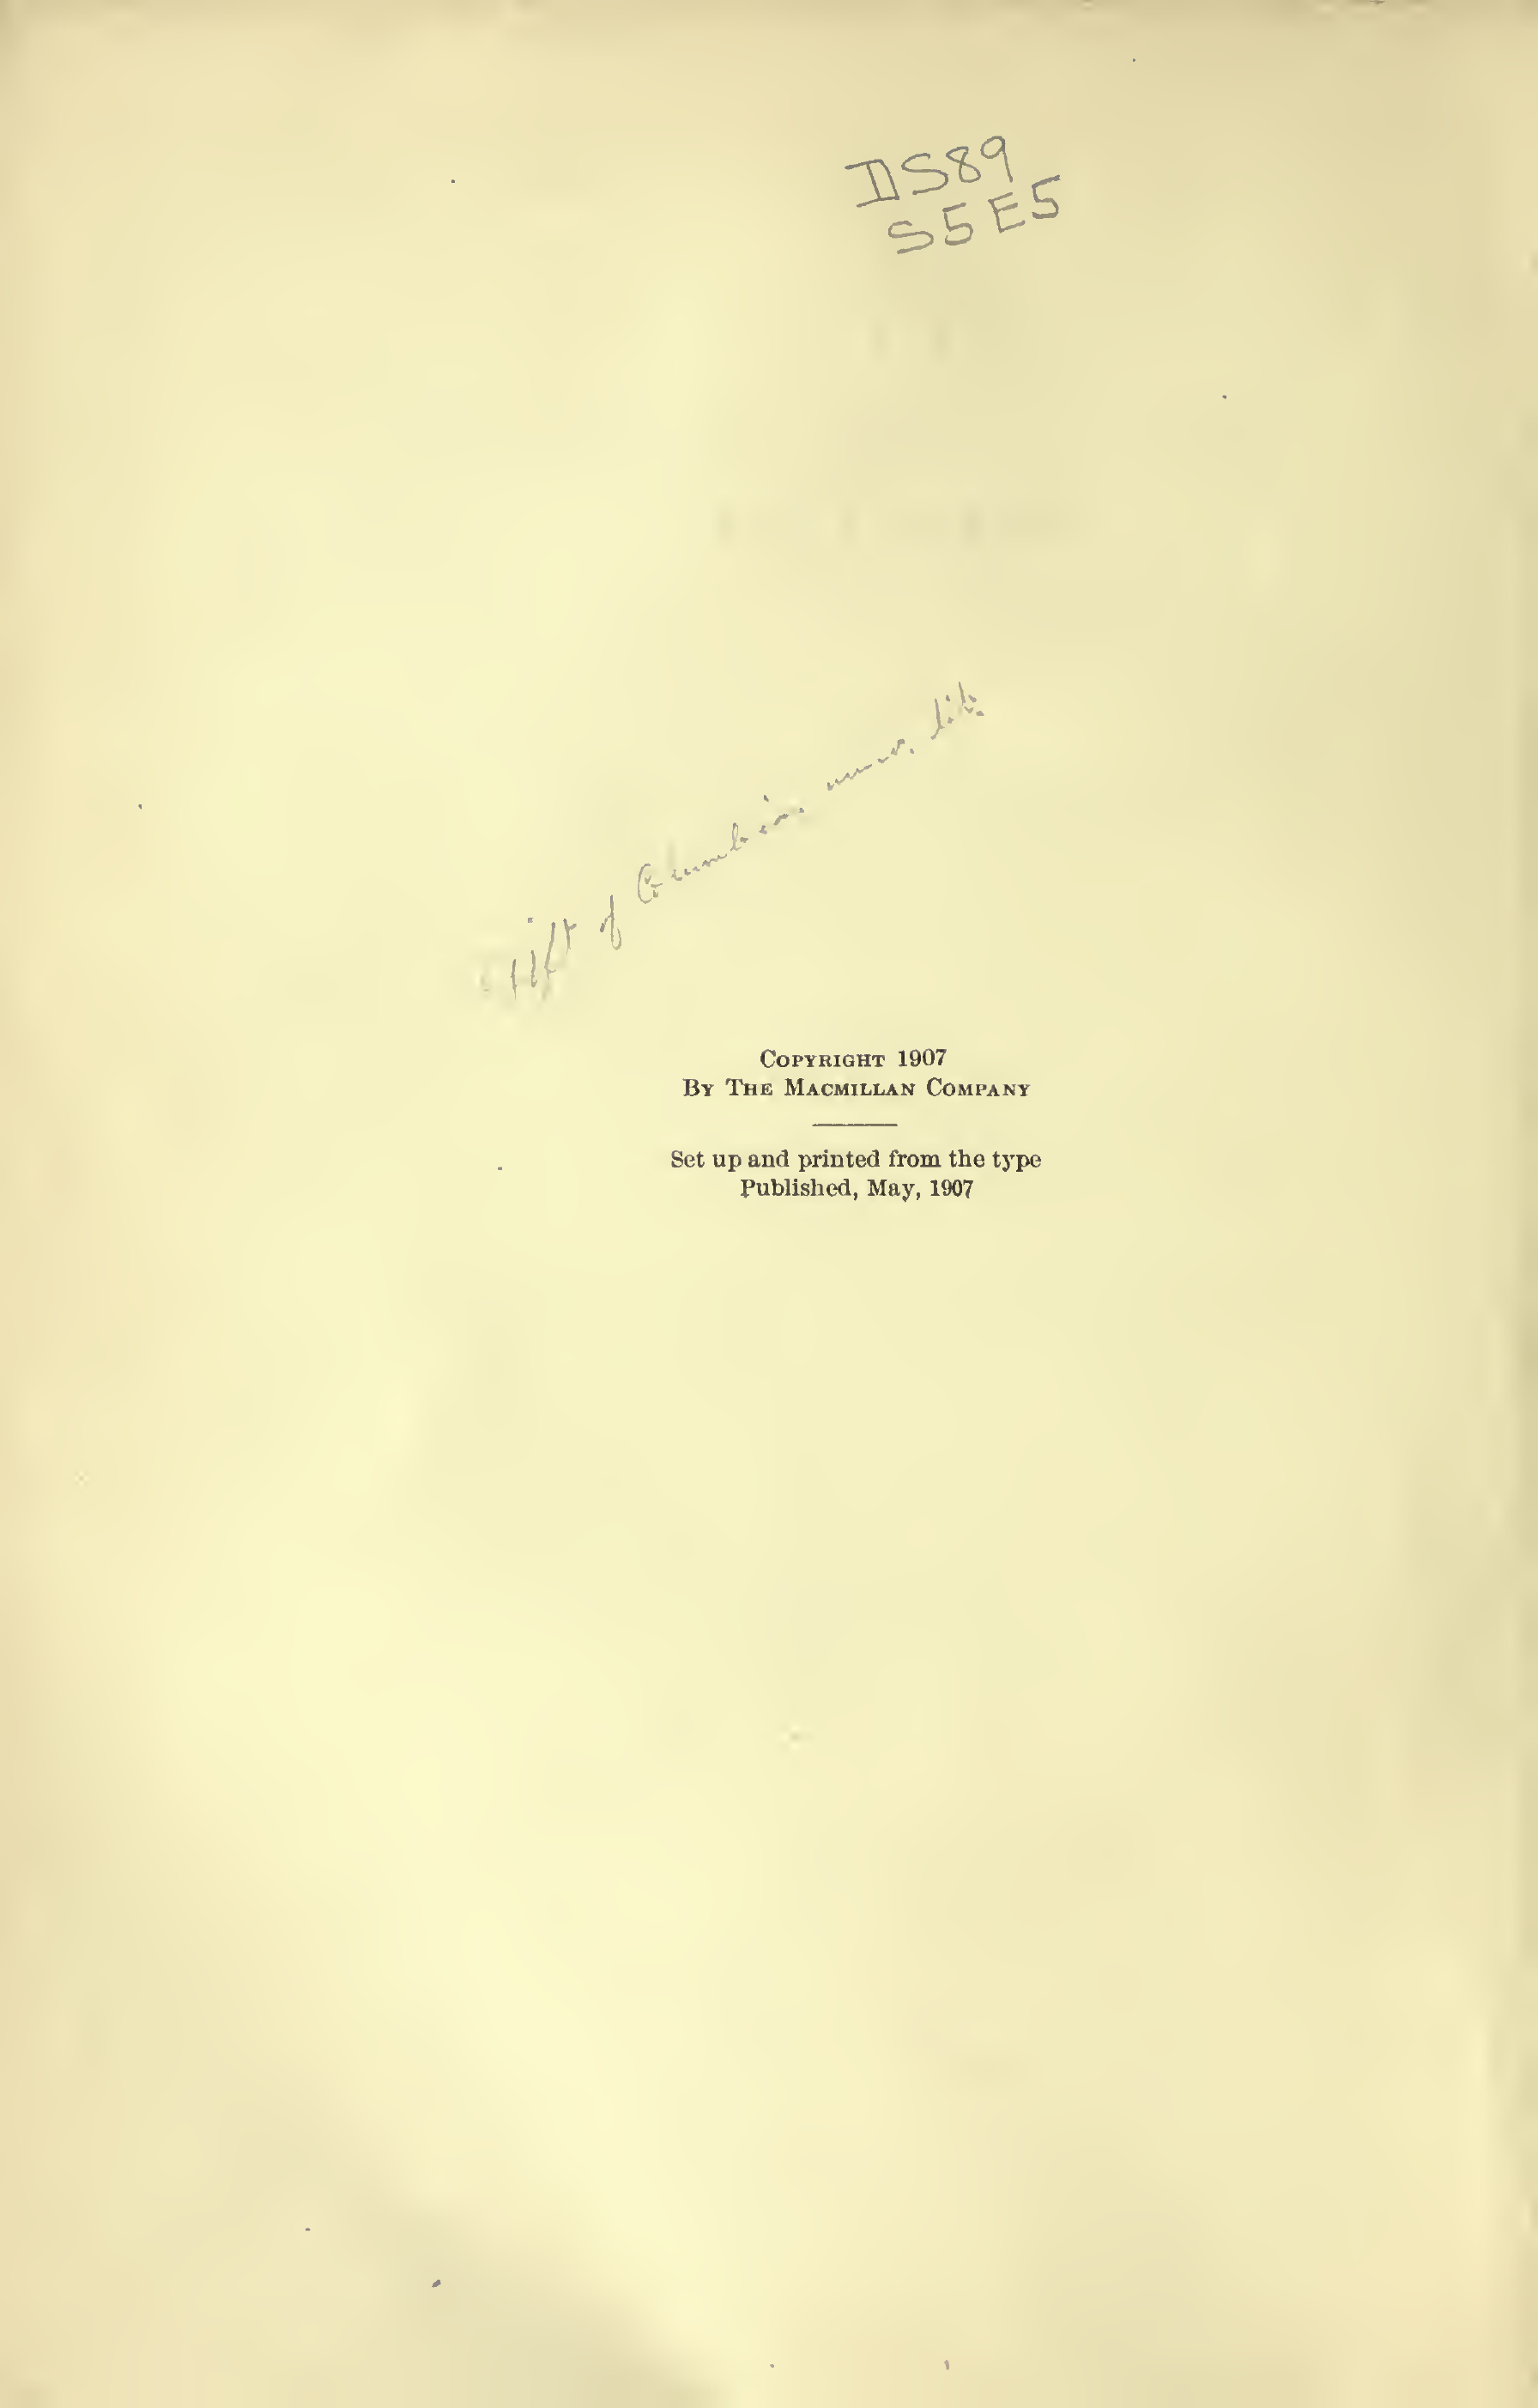 DS89
S5E5
Gift of Columbia univ. lib.
COPYRIGHT 1907
BY THE MACMILLAN COMPANY
Set up and printed from the type
Published, May, 1907